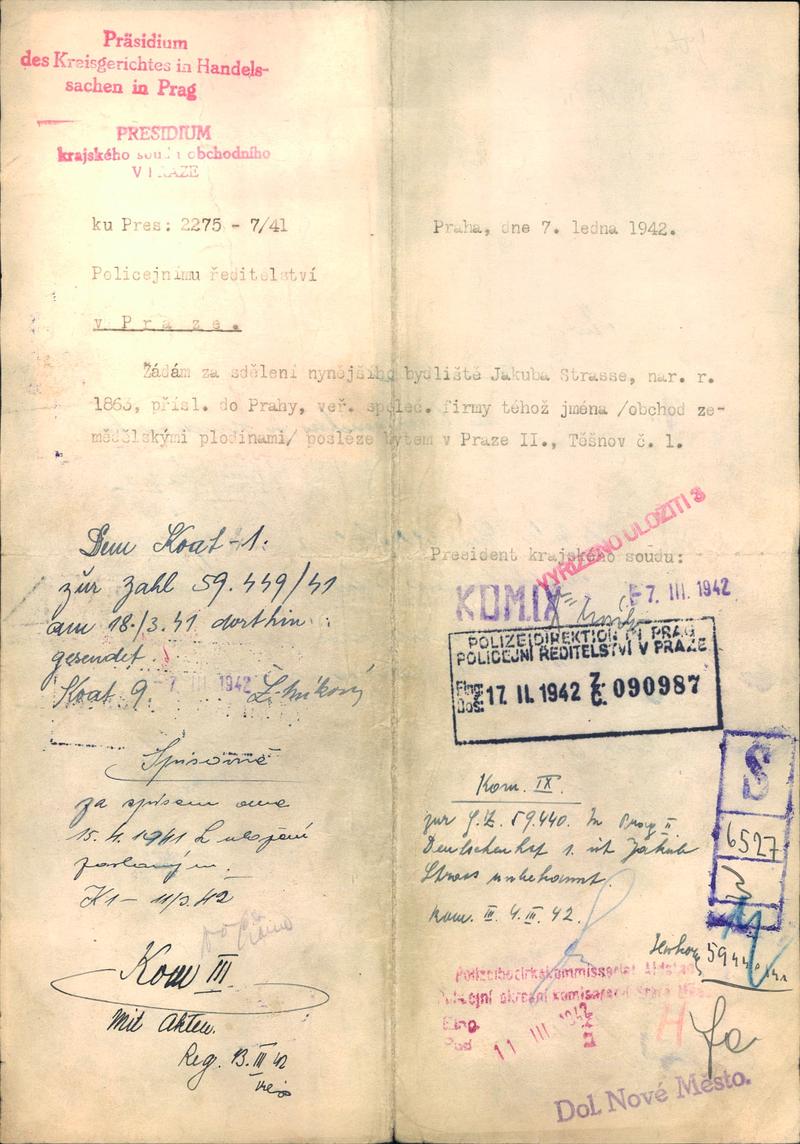 Präsidium
des Kreisgerichtes in Handels-
sachen in Prag
PRESIDIUM
krajského soudu obchodního
V PRAZE
ku Pres: 2275 - 7/41
Praha, dne 7. ledna 1942.
Policejnímu ředitelství
v Praze.
Žádám za sdělení nynějšího bydliště Jakuba Strasse, nar. r.
1863, přísl. do Prahy, veř. společ. firmy téhož jména /obchod ze-
mědělskými plodinami/ posléze bytem v Praze II., Těšnov č. 1.
VYŘÍZENO ULOŽITI 3
President krajského soudu:
KOM.IX
7. III. 1942
POLIZEIDIREKTION IN PRAG
POLICEJNÍ ŘEDITELSTVÍ V PRAZE
Eing.
Doš.
17. II. 1942
Z.
Č.
090987
Dem Koat-1:
zur Zahl 59.449/41
am 18./3.41 dorthin
gesendet.
Koat 9.
7 III 1942
Spisovně
za spisem
15.4.1941
K1 - 11/3.42
Kom III
Mit Akten.
Reg. 13.III 42
Kom. IX.
zur Z. 59.440. In Prag II.
Deutschenhof 1. ist Jakub
Strass unbekannt.
Kom. III. 4.III.42.
S
6527
Polizeibezirkskommissariat
Policejní okresní komisařství
Eing.
11 III. 1942
H
Dol. Nové Město.